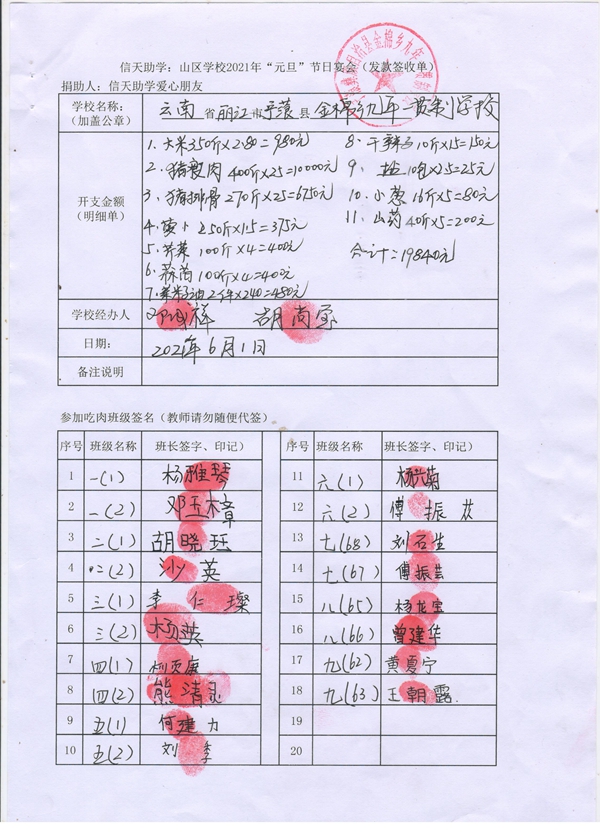 信天助学：山区学校2021年“元旦”节日宴会（发款签收单）
捐助人：信天助学爱心朋友
学校名称：（加盖公章） 云南省丽江市宁蒗县金棉乡九年一贯制学校
开支金额（明细单）
1. 大米350斤×2.80=980元
2. 猪瘦肉400斤×25=10000元
3. 猪排骨270斤×25=6750元
4. 萝卜250斤×1.5=375元
5. 芥菜100斤×4=400元
6. 蒜苗100斤×4=400元
7. 菜籽油2件×240=480元
8. 干辣子10斤×15=150元
9. 盐10包×2.5=25元
10. 小葱16斤×5=80元
11. 山药40斤×5=200元
合计=19840元
学校经办人 祥 胡尚宝
日期： 2021年6月1日
备注说明
参加吃肉班级签名（教师请勿随便代签）
序号 班级名称 班长签字、印记）
1 一(1) 杨雅琴
2 一(2) 邓玉樟
3 二(1) 胡晓珏
4 二(2) 沙英
5 三(1) 李仁璨
6 三(2) 杨洪
7 四(1)
8 四(2) 熊清灵
9 五(1) 何建力
10 五(2) 刘季
序号 班级名称 班长签字、印记）
11 六(1) 杨兴菊
12 六(2) 傅振
13 七(68) 刘石生
14 七(67) 傅振芸
15 八(65) 杨龙宝
16 八(66) 曾建华
17 九(62) 黄夏宁
18 九(63) 王朝露
19
20